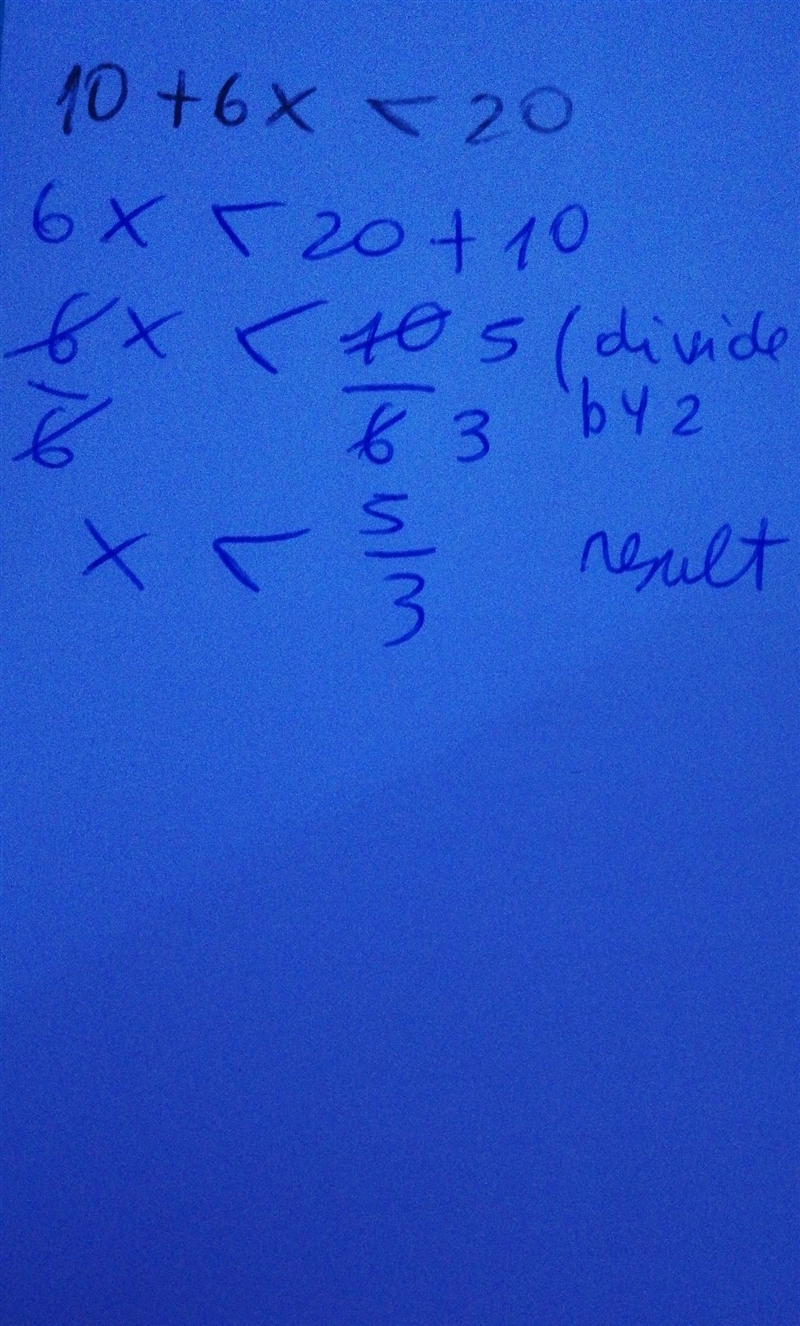 10 + 6x < 20
6x < 20 + 10
6x/6 < 10/6 5/3 (divide by 2
x < 5/3 result